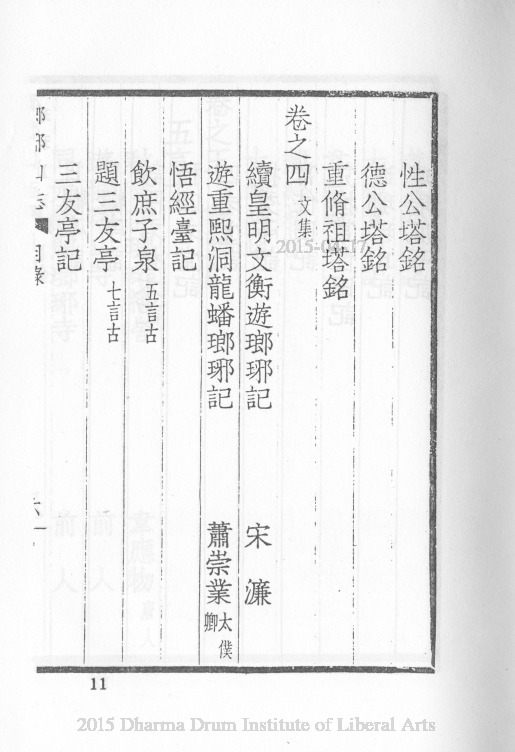 性公塔銘
德公塔銘
重脩祖塔銘
卷之四 文集
續皇明文衡遊瑯琊記 宋濂
遊重熙洞龍蟠瑯琊記 蕭崇業 太僕卿
悟經臺記
飲庶子泉 五言古
題三友亭 七言古
三友亭記
山志 目錄
11
2015 Dharma Drum Institute of Liberal Arts